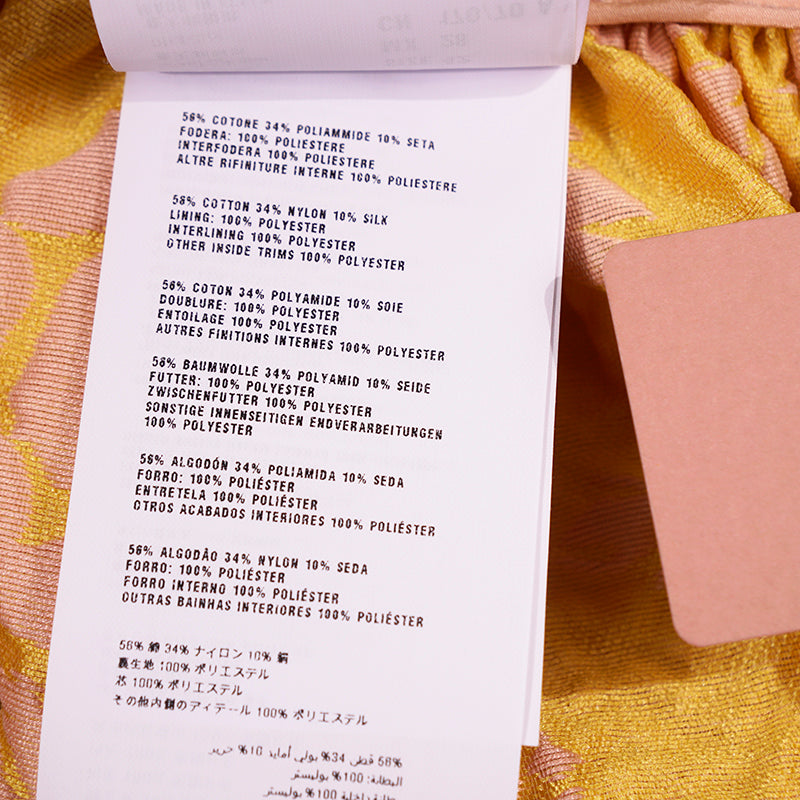 CN 170/70 A
MX 28
56% COTONE 34% POLIAMMIDE 10% SETA
FODERA: 100% POLIESTERE
INTERFODERA 100% POLIESTERE
ALTRE RIFINITURE INTERNE 100% POLIESTERE
56% COTTON 34% NYLON 10% SILK
LINING: 100% POLYESTER
INTERLINING 100% POLYESTER
OTHER INSIDE TRIMS 100% POLYESTER
56% COTON 34% POLYAMIDE 10% SOIE
DOUBLURE: 100% POLYESTER
ENTOILAGE 100% POLYESTER
AUTRES FINITIONS INTERNES 100% POLYESTER
56% BAUMWOLLE 34% POLYAMID 10% SEIDE
FUTTER: 100% POLYESTER
ZWISCHENFUTTER 100% POLYESTER
SONSTIGE INNENSEITIGEN ENDVERARBEITUNGEN
100% POLYESTER
56% ALGODÓN 34% POLIAMIDA 10% SEDA
FORRO: 100% POLIÉSTER
ENTRETELA 100% POLIÉSTER
OTROS ACABADOS INTERIORES 100% POLIÉSTER
56% ALGODÃO 34% NYLON 10% SEDA
FORRO: 100% POLIÉSTER
FORRO INTERNO 100% POLIÉSTER
OUTRAS BAINHAS INTERIORES 100% POLIÉSTER
56% 綿 34% ナイロン 10% 絹
裏生地 100% ポリエステル
芯 100% ポリエステル
その他内側のディテール 100% ポリエステル
56% قطن 34% بولي أمايد 10% حرير
البطانة: 100% بوليستر
بطانة داخلية 100% بوليستر